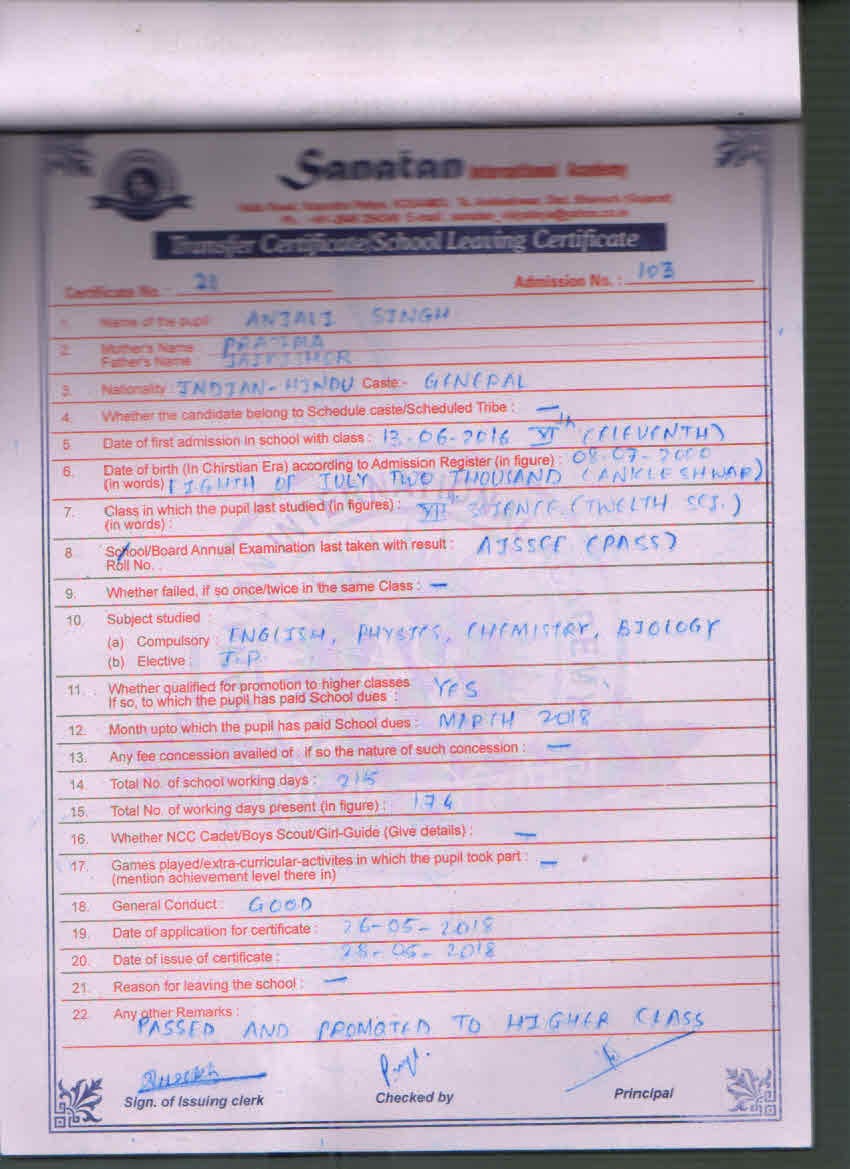 Sanatan International Academy
Transfer Certificate/School Leaving Certificate
Certificate No. : 21 Admission No. : 103
1. Name of the pupil ANJALI SINGH
2. Mother's Name PRATIMA
Father's Name
3. Nationality : INDIAN-HINDU Caste:- GENERAL
4. Whether the candidate belong to Schedule caste/Scheduled Tribe : —
5. Date of first admission in school with class : 13-06-2016 XIth (ELEVENTH)
6. Date of birth (In Chirstian Era) according to Admission Register (in figure) : 08-07-2000
(in words) EIGHTH OF JULY TWO THOUSAND (ANKLESHWAR)
7. Class in which the pupil last studied (in figures) : XIIth SCIENCE (TWELTH SCI.)
(in words) :
8. School/Board Annual Examination last taken with result : AISSCE (PASS)
Roll No. :
9. Whether failed, if so once/twice in the same Class : —
10. Subject studied :
(a) Compulsory : ENGLISH, PHYSICS, CHEMISTRY, BIOLOGY
(b) Elective : I.P.
11. Whether qualified for promotion to higher classes YES
If so, to which the pupil has paid School dues :
12. Month upto which the pupil has paid School dues : MARCH 2018
13. Any fee concession availed of : if so the nature of such concession : —
14. Total No. of school working days : 215
15. Total No. of working days present (in figure) : 174
16. Whether NCC Cadet/Boys Scout/Girl-Guide (Give details) : —
17. Games played/extra-curricular-activites in which the pupil took part : —
(mention achievement level there in)
18. General Conduct : GOOD
19. Date of application for certificate : 26-05-2018
20. Date of issue of certificate : 28-05-2018
21. Reason for leaving the school : —
22. Any other Remarks :
PASSED AND PROMOTED TO HIGHER CLASS
Sign. of Issuing clerk Checked by Principal